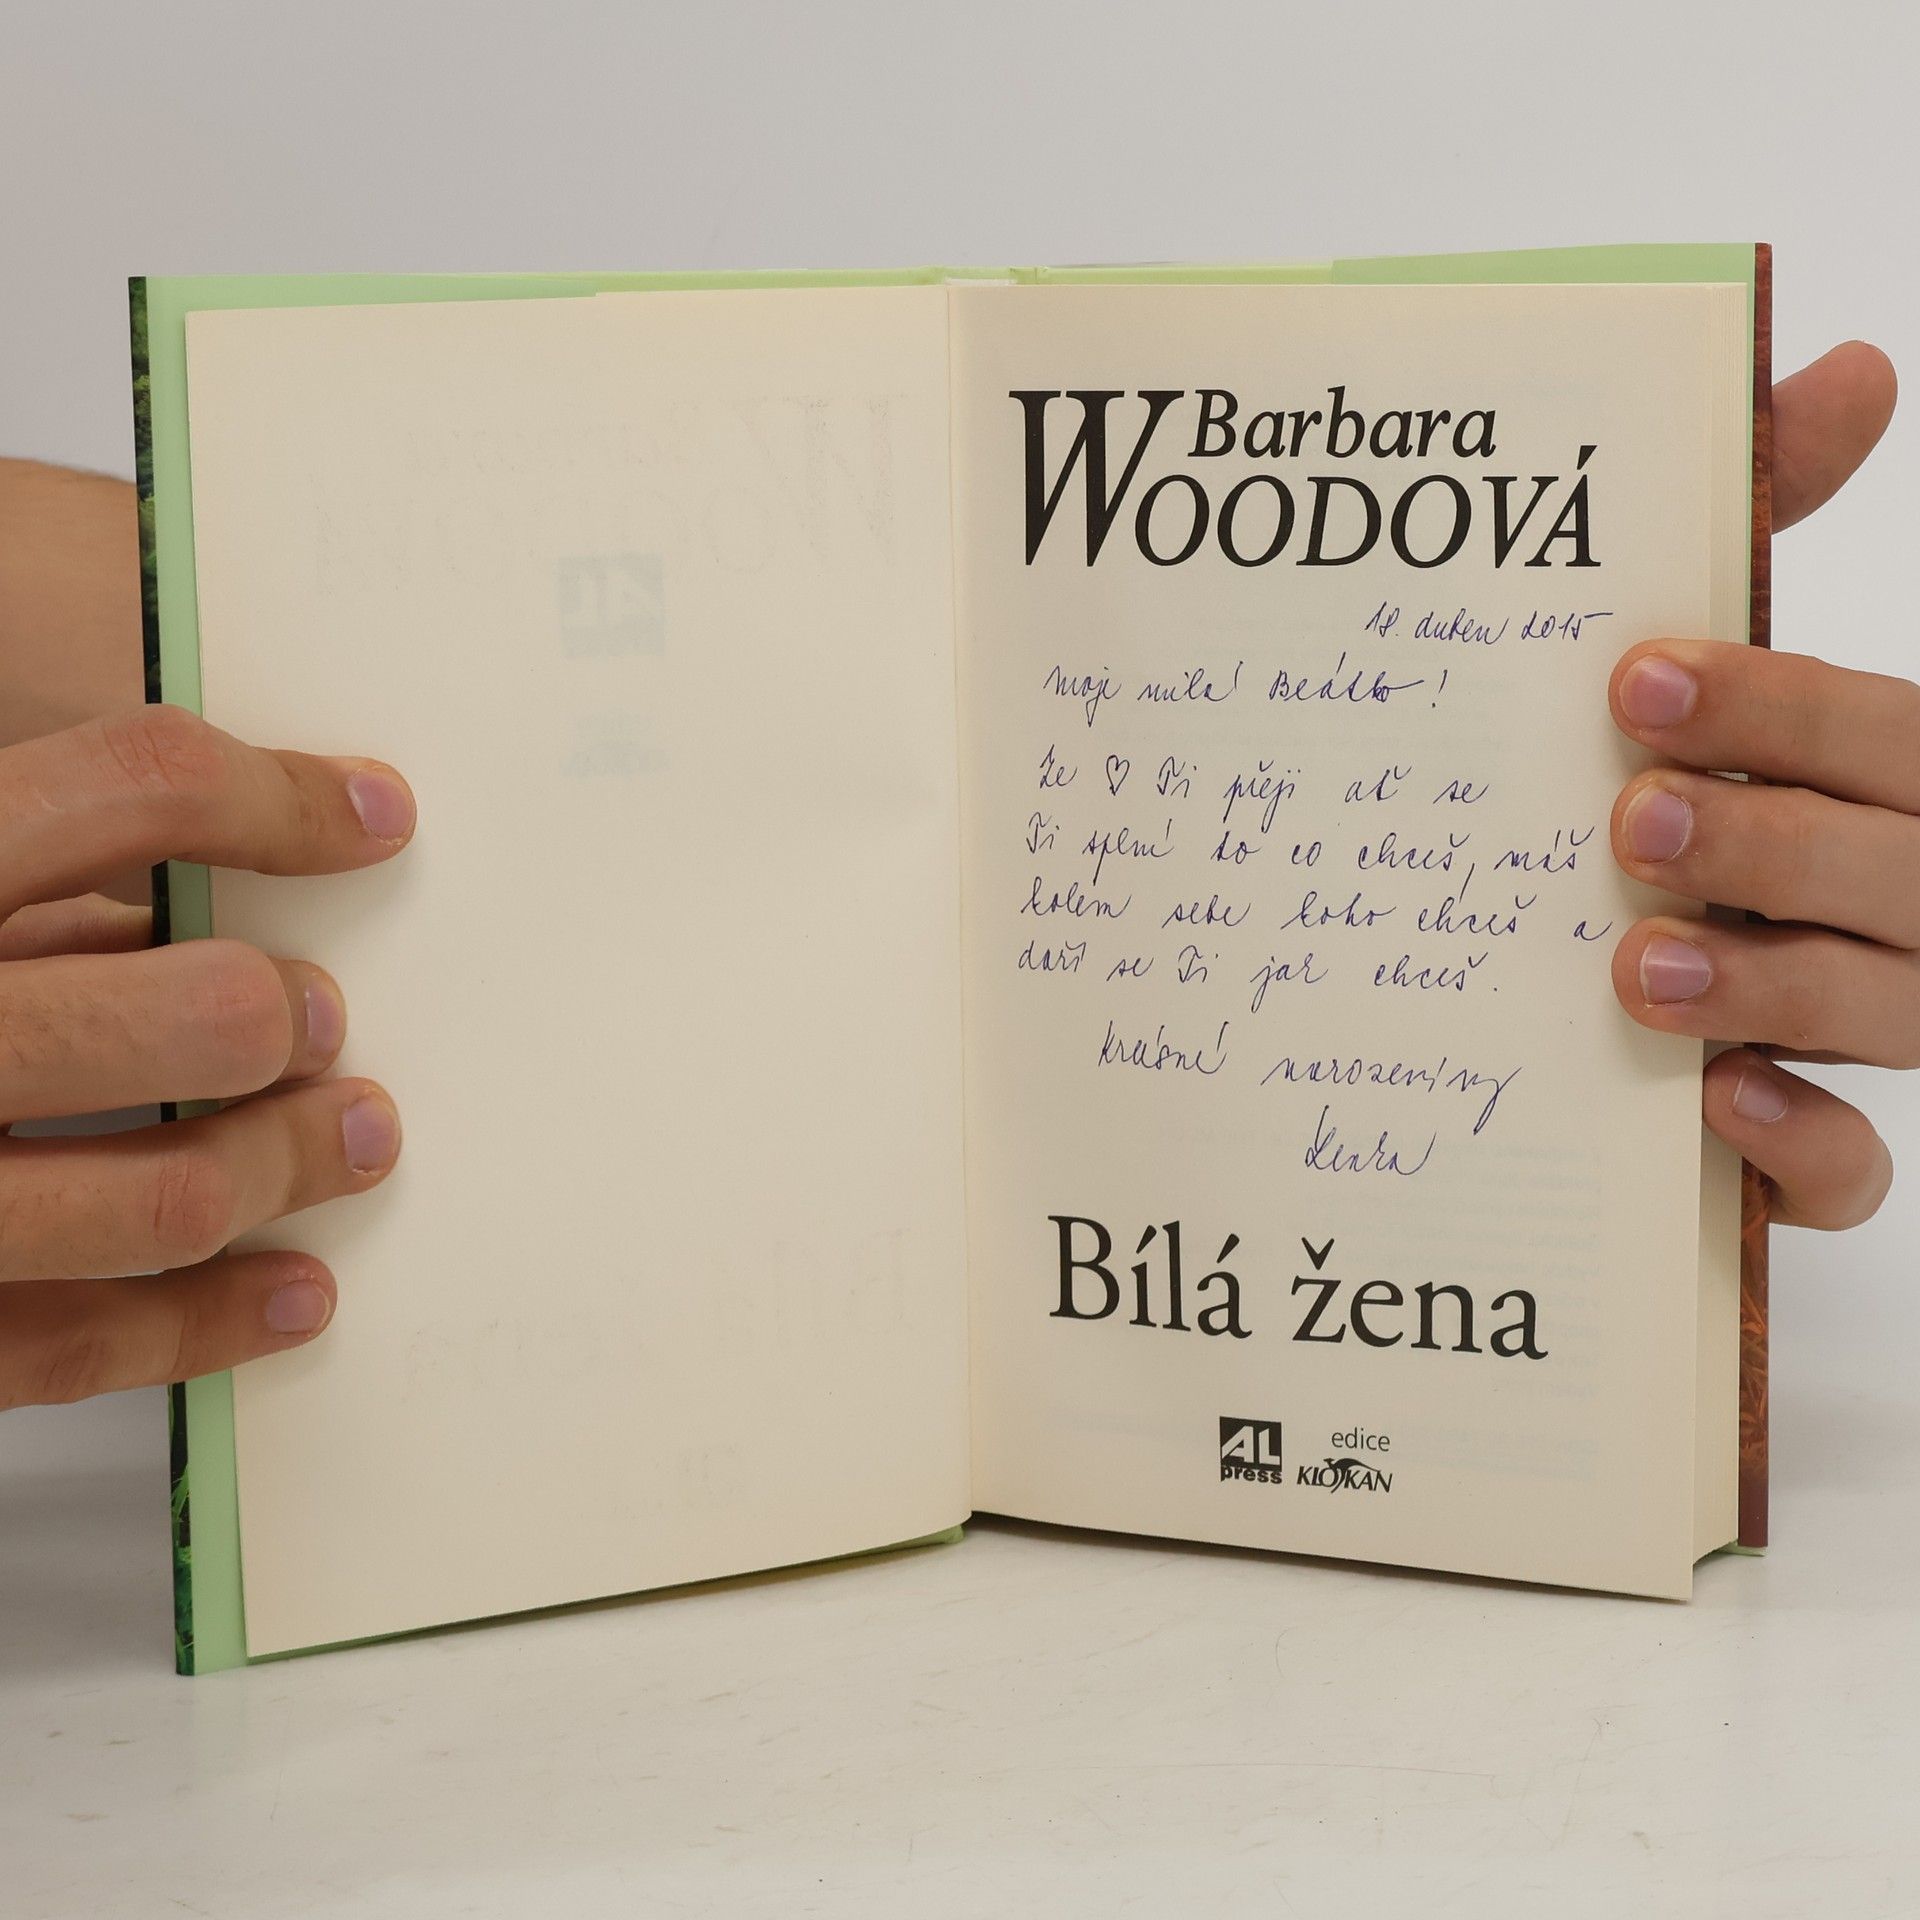 Barbara
WOODOVÁ
18. duben 2015
moje milá Beátko!
Ze ♡ Ti přeji ať se
Ti splní to co chceš, máš
kolem sebe koho chceš a
daří se Ti jak chceš.
Krásné narozeniny
Lenka
Bílá žena
AL
press
edice
KLOKAN